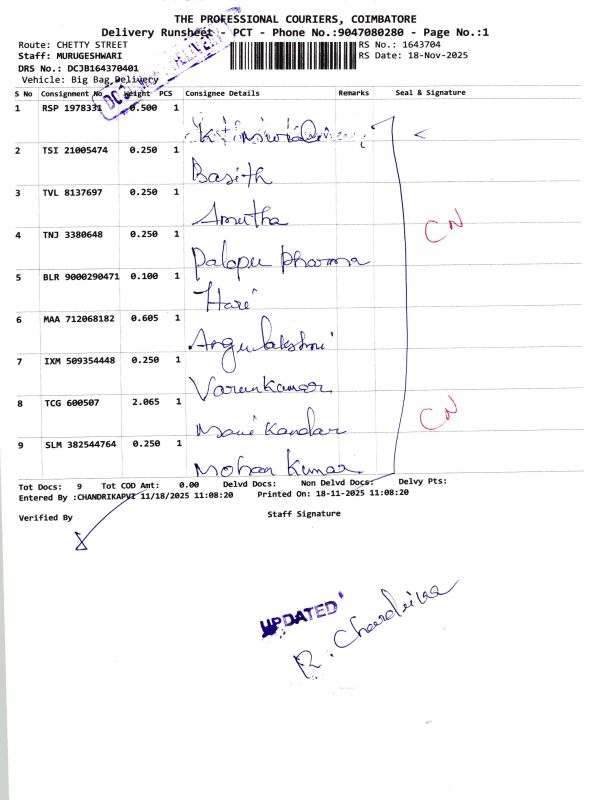 THE PROFESSIONAL COURIERS, COIMBATORE
Delivery Runsheet - PCT - Phone No.:9047080280 - Page No.:1
Route: CHETTY STREET
RS No.: 1643704
Staff: MURUGESHWARI
RS Date: 18-Nov-2025
DRS No.: DCJB164370401
Vehicle: Big Bag Delivery
S No Consignment No Weight PCS Consignee Details Remarks Seal & Signature
1 RSP 1978331 0.500 1
2 TSI 21005474 0.250 1 Basith
3 TVL 8137697 0.250 1 Amutha
4 TNJ 3380648 0.250 1 Palapu Pharma
5 BLR 9000290471 0.100 1 Hari
6 MAA 712068182 0.605 1
7 IXM 509354448 0.250 1 Varunkumar
8 TCG 600507 2.065 1 Manikandan
9 SLM 382544764 0.250 1 Mohan Kumar
CN
CN
Tot Docs: 9 Tot COD Amt: 0.00 Delvd Docs: Non Delvd Docs: Delvy Pts:
Entered By :CHANDRIKAPVT 11/18/2025 11:08:20 Printed On: 18-11-2025 11:08:20
Verified By Staff Signature
UPDATED
R. Chandrika